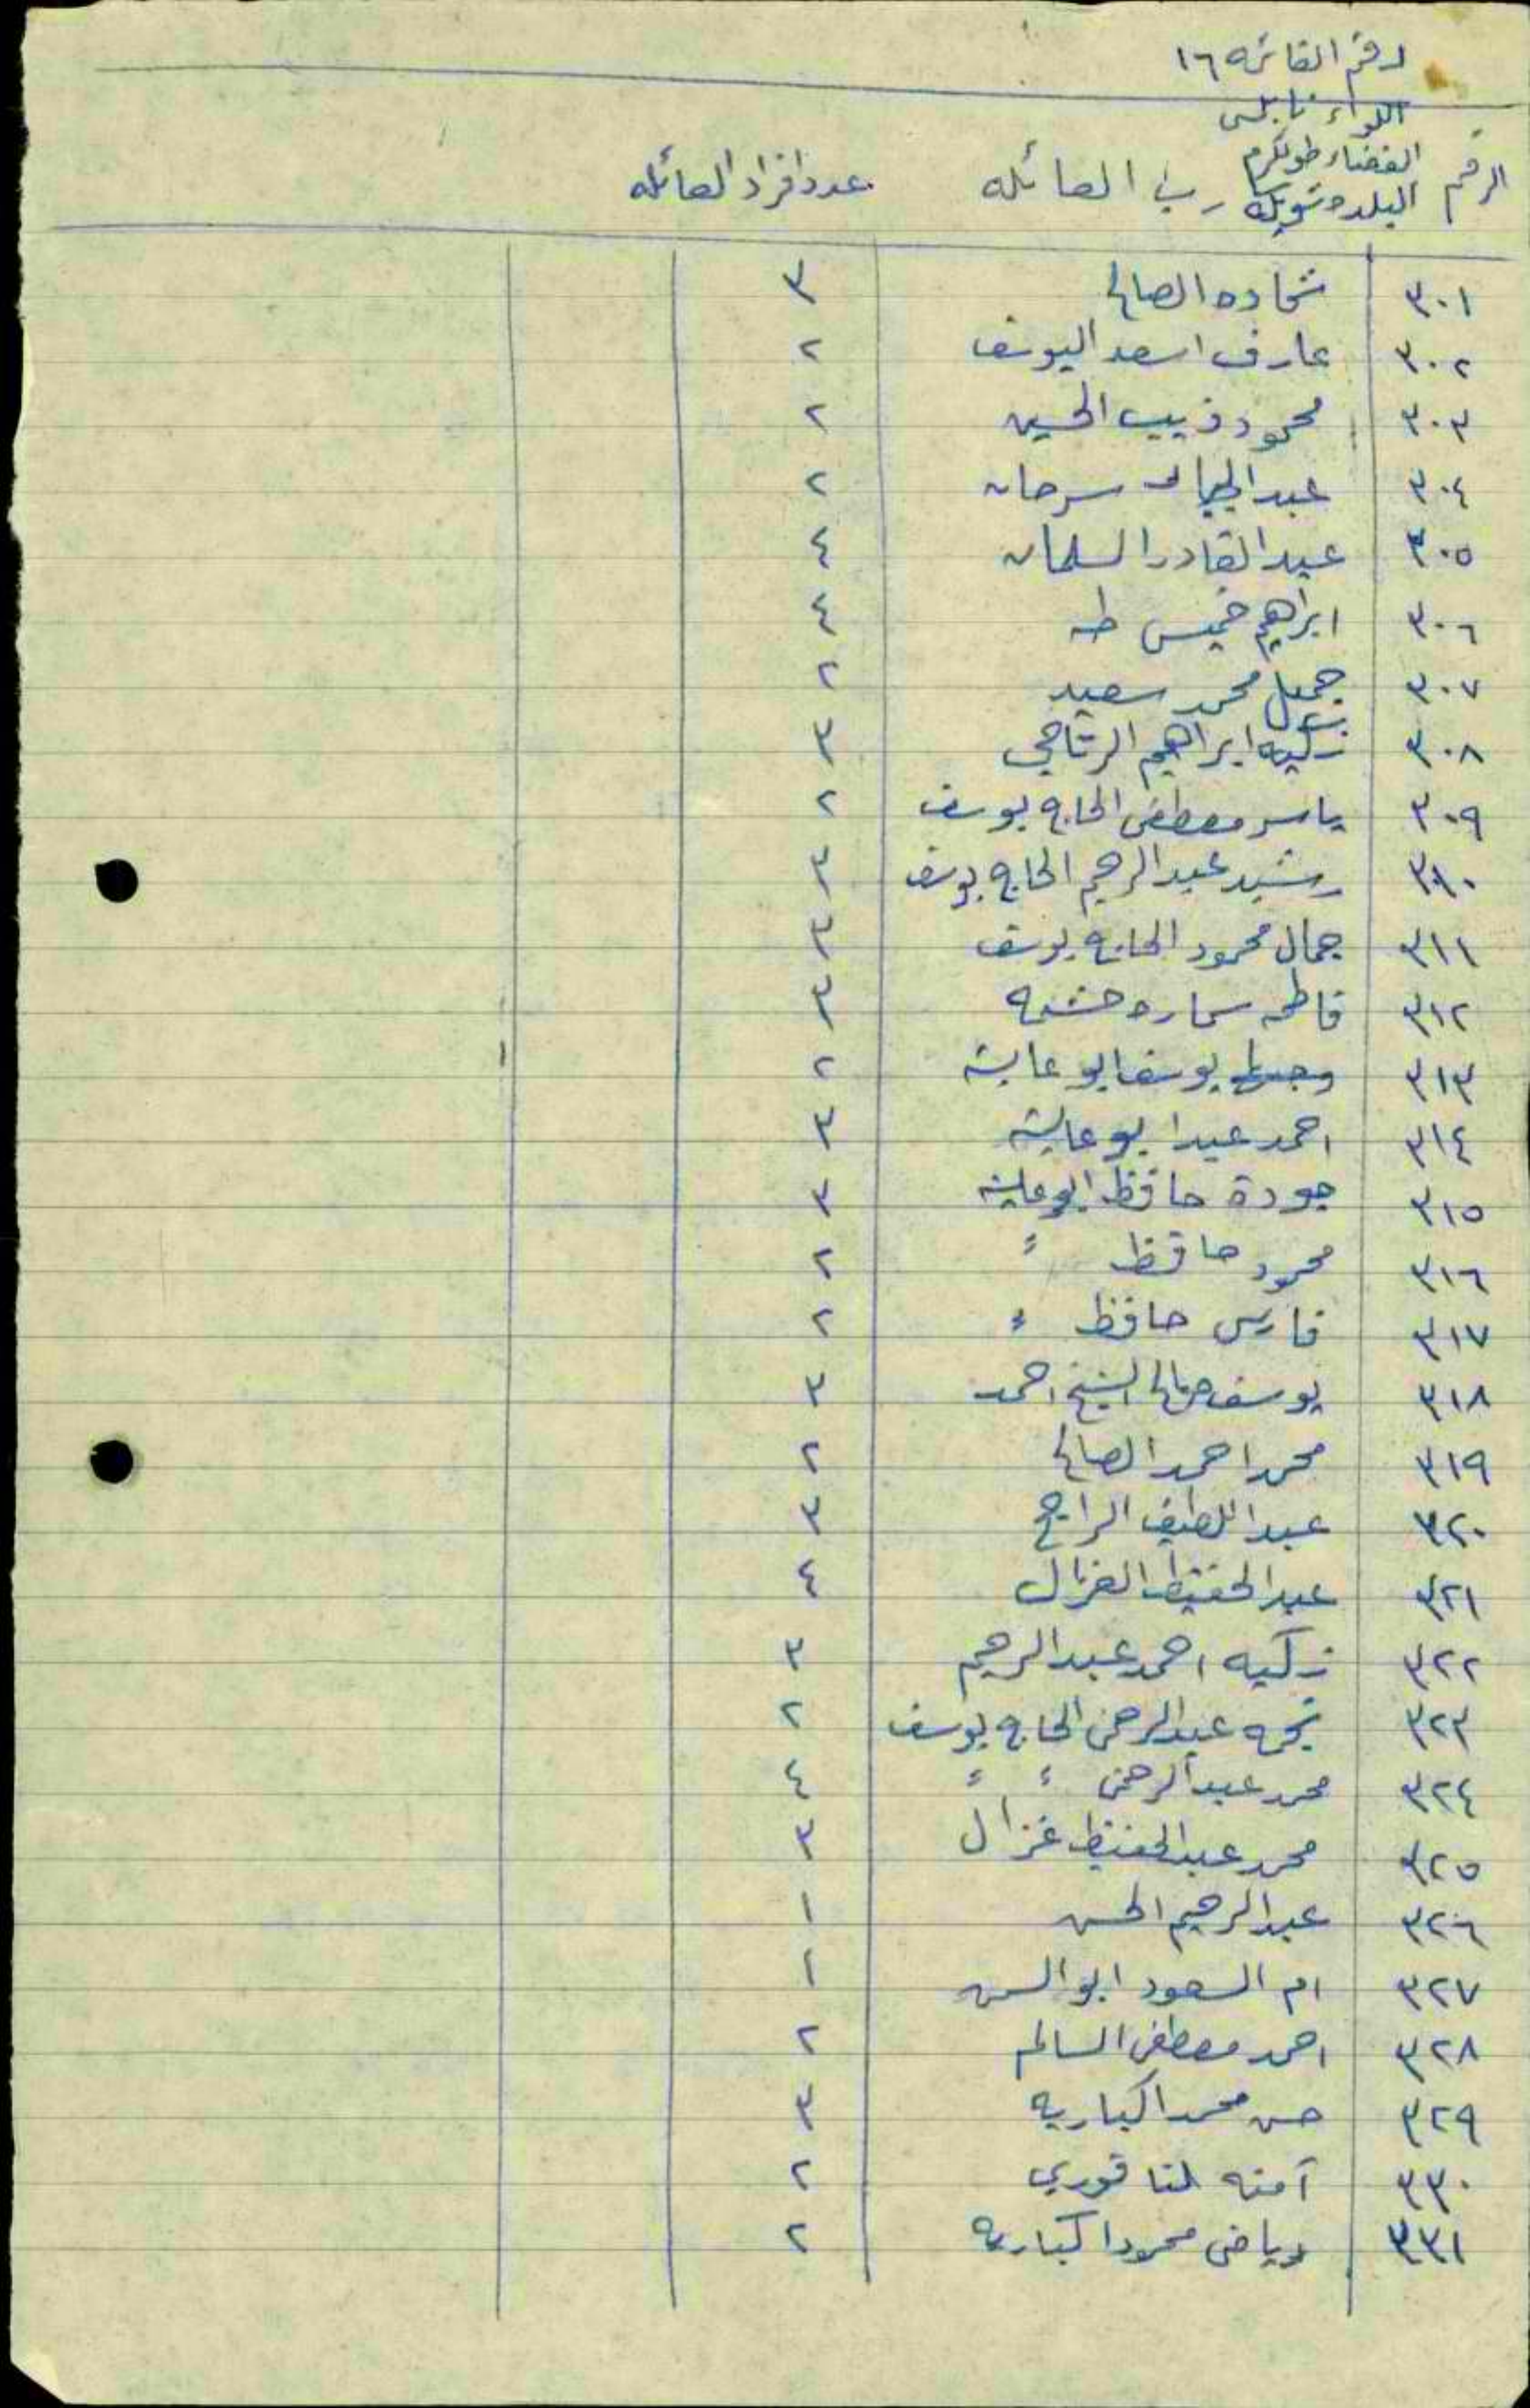 رقم القائمه ١٦
اللواء نابلس
القضاء طولكرم
البلده شويكه
الرقم رب العائله عدد افراد العائله
٣٠١ شحاده الصالح ٣
٣٠٢ عارف اسعد اليوسف ٢
٣٠٣ محمود ذيب الحسين ٢
٣٠٤ عبد سرحان ٢
٣٠٥ عبد القادر السلمان ٤
٣٠٦ ابراهيم خميس طه ٤
٣٠٧ جميل محمد سعيد ٢
٣٠٨ زكيه ابراهيم ٣
٣٠٩ ياسر مصطفى الحاج يوسف ٢
٣١٠ رشيد عبد الرحيم الحاج يوسف ٣
٣١١ جمال محمود الحاج يوسف ٣
٣١٢ فاطمه سماره ٣
٣١٣ يوسف ابو عايشه ٢
٣١٤ احمد عبد ابو عايشه ٣
٣١٥ جودة حافظ ابو عايشه ٣
٣١٦ محمود حافظ ء ٢
٣١٧ فارس حافظ ء ٢
٣١٨ يوسف صالح الشيخ احمد ٣
٣١٩ محمد احمد الصالح ٢
٣٢٠ عبد اللطيف الراجح ٣
٣٢١ عبد الحفيظ الغزال ٤
٣٢٢ زكيه احمد عبد الرحيم ٣
٣٢٣ نجمه عبد الرحمن الحاج يوسف ٢
٣٢٤ محمد عبد الرحمن ء ء ٤
٣٢٥ محمد عبد الحفيظ غزال ٣
٣٢٦ عبد الرحيم الحسن ١
٣٢٧ ام السعود ابو السن ١
٣٢٨ احمد مصطفى السالم ٢
٣٢٩ حسن محمد اكباريه ٣
٣٣٠ آمنه قوري ٢
٣٣١ رياض محمود اكباريه ٢